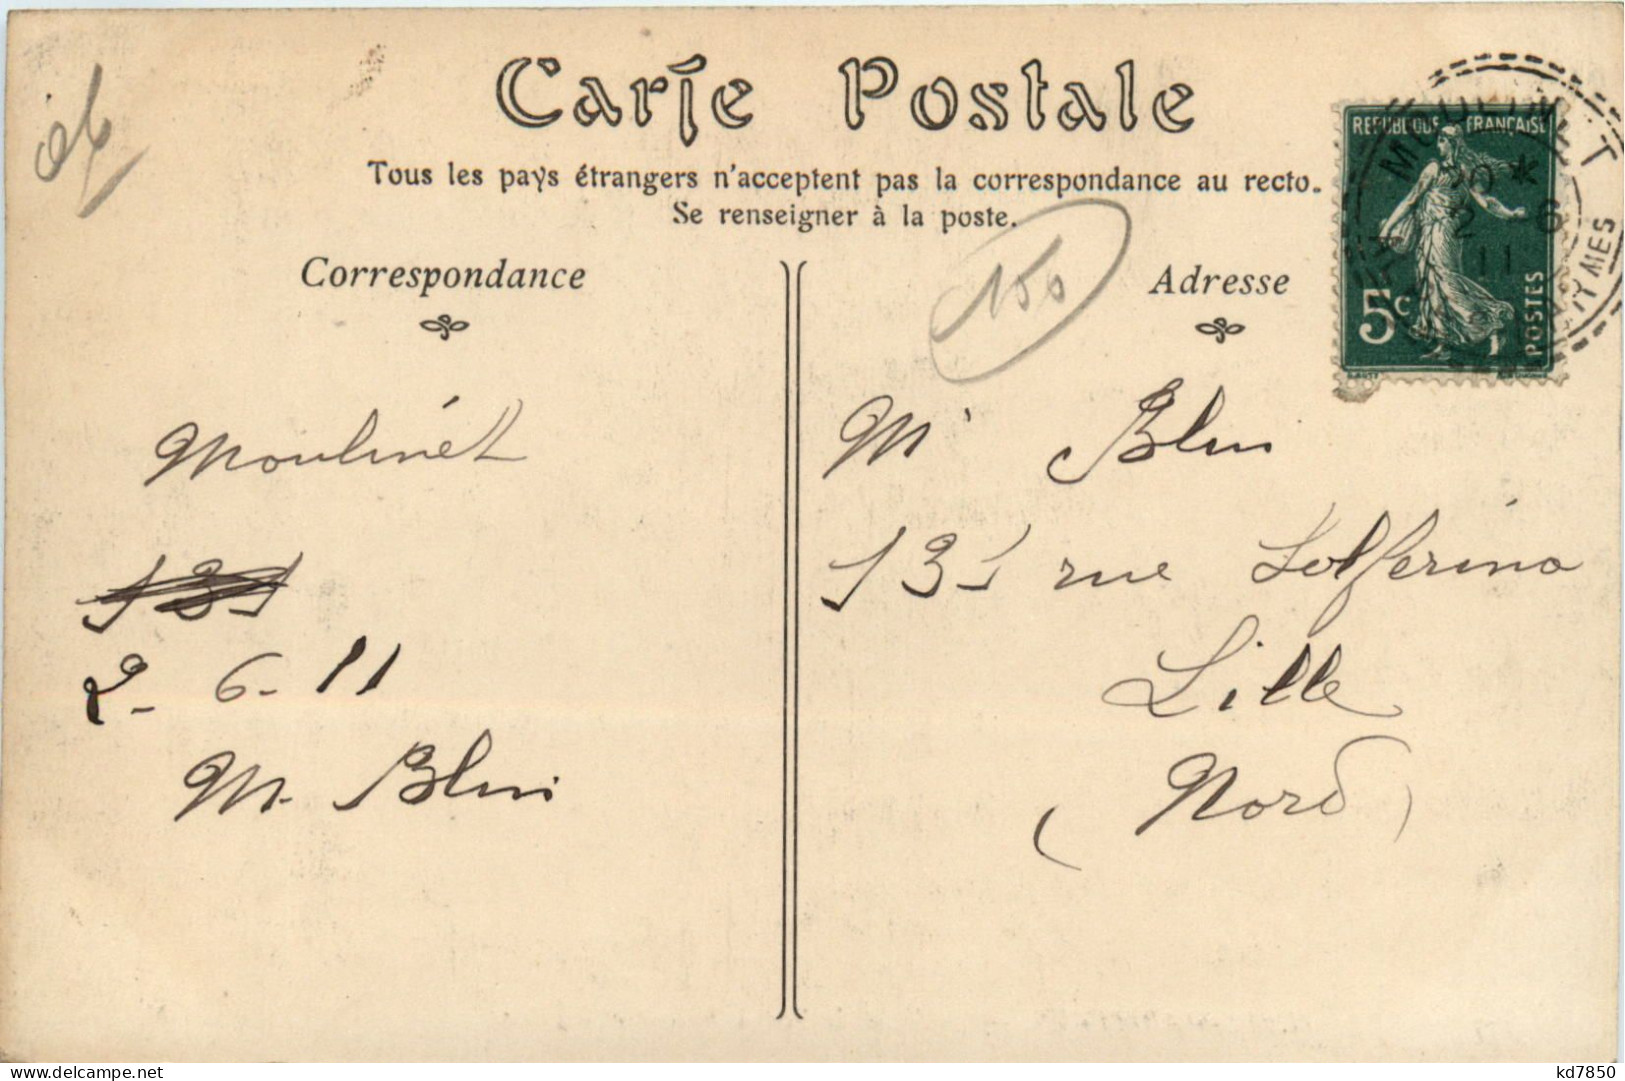 Carte Postale
Tous les pays étrangers n'acceptent pas la correspondance au recto.
Se renseigner à la poste.
150
Correspondance
Adresse
REPUBLIQUE FRANÇAISE
5c
POSTES
MOULINET
20 *
2 6
11
Moulinet
131
2-6-11
M. Blin
Mr Blin
131 rue Solferino
Lille
(Nord)
kd7850